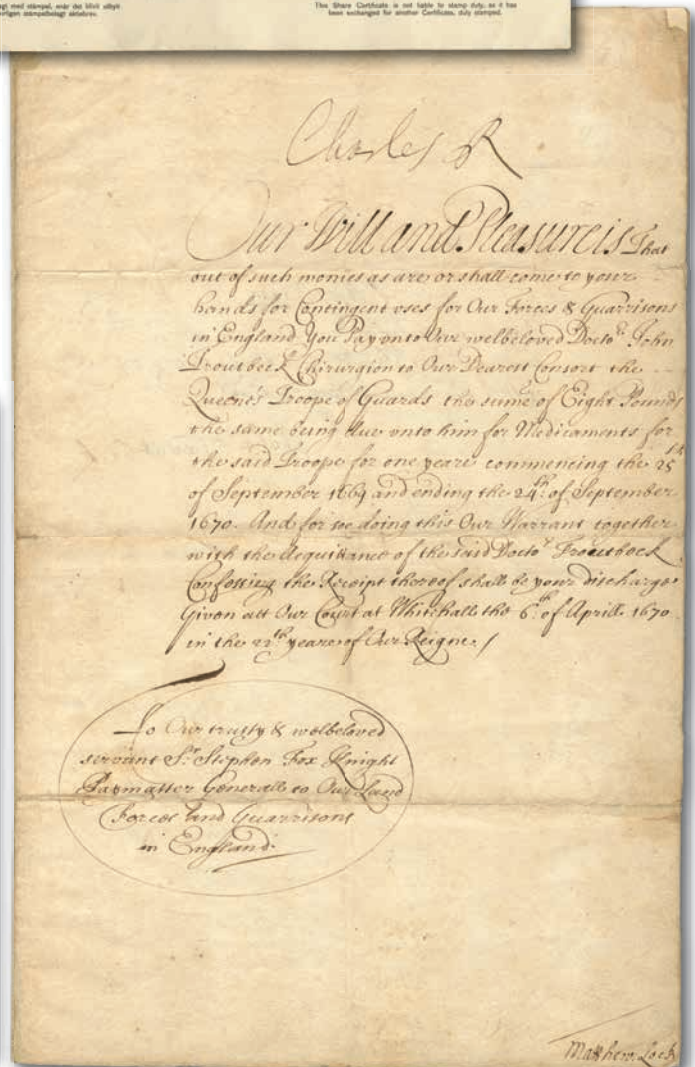 The Share Certificate is not liable to stamp duty, as it has
been exchanged for another Certificate, duly stamped.
Charles R
Our Will and Pleasure is That
out of such monies as are or shall come to your
hands for Contingent uses for Our Forces & Guarrisons
in England You Pay unto Our welbeloved Docto.r John
Troutbeck Chirurgion to Our Dearest Consort the
Queene's Troope of Guards the summe of Eight Pounds
the same being due unto him for Medicaments for
the said Troope for one yeare commencing the 25th
of September 1669 and ending the 24th of September
1670. And for soe doing this Our Warrant together
with the Acquittance of the said Docto.r Troutbeck
Confessing the Receipt thereof shall be your discharge
Given att Our Court at Whitehall the 6th of Aprill 1670
in the 22th yeare of Our Reigne /
To Our trusty & welbeloved
servant S.r Stephen Fox Knight
Paymaster Generall to Our Land
Forces and Guarrisons
in England.
Matthew Lock